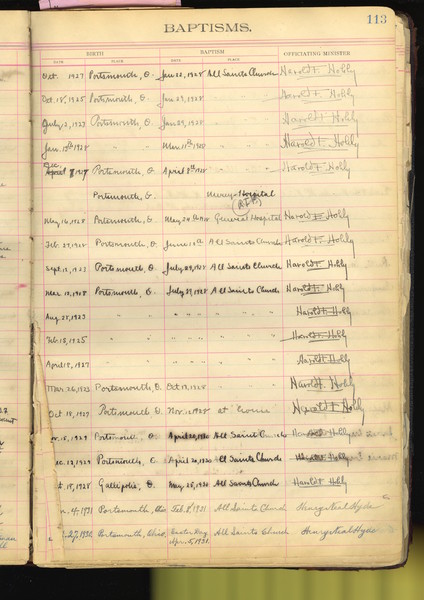 113
BAPTISMS.
BIRTH BAPTISM OFFICIATING MINISTER
DATE PLACE DATE PLACE
Oct. 1927 Portsmouth, O. Jan 22, 1928 All Saints Church Harold F. Hohly
Oct. 18, 1925 Portsmouth, O. Jan 29, 1928 " " " Harold F. Hohly
July 12, 1923 Portsmouth, O. Jan 29, 1928 " " " Harold F. Hohly
Jan. 1928 " " Mar. 11th 1928 " " " Harold F. Hohly
Dec.
1927 Portsmouth, O. April 8th 1928 " " " Harold F. Hohly
Portsmouth, O. Mercy Hospital
May 16, 1928 Portsmouth, O. May 24th 1928 General Hospital Harold F. Hohly
Feb. 27, 1928 Portsmouth, O. June All Saints Church Harold F. Hohly
Sept. 12, 1923 Portsmouth, O. July 29, 1928 All Saints Church Harold F. Hohly
Mar. 18, 1928 Portsmouth, O. July 29, 1928 All Saints Church Harold F. Hohly
Aug. 25, 1923 " " " " " " Harold F. Hohly
Feb. 13, 1925 " " " " " " Harold F. Hohly
April 9, 1927 " " " " " " Harold F. Hohly
Mar. 26, Portsmouth, O. Oct 1928 " " " Harold F. Hohly
Oct 18, Portsmouth O. Nov. 1928 at home Harold F. Hohly
15, 1929 Portsmouth, O. April 20, 1930 All Saints Harold F. Hohly
13, 1929 Portsmouth, O. April 20, 1930 All Saints Church Harold F. Hohly
15, 1928 Gallipolis, O. May 25, 1930 All Saints Church Harold F. Hohly
4, 1931 Portsmouth, Ohio Feb. 8, 1931 All Saints Church Henry Neal Hyde
27, Portsmouth, Ohio, Easter Day All Saints Church Henry Neal Hyde
Apr. 5, 1931